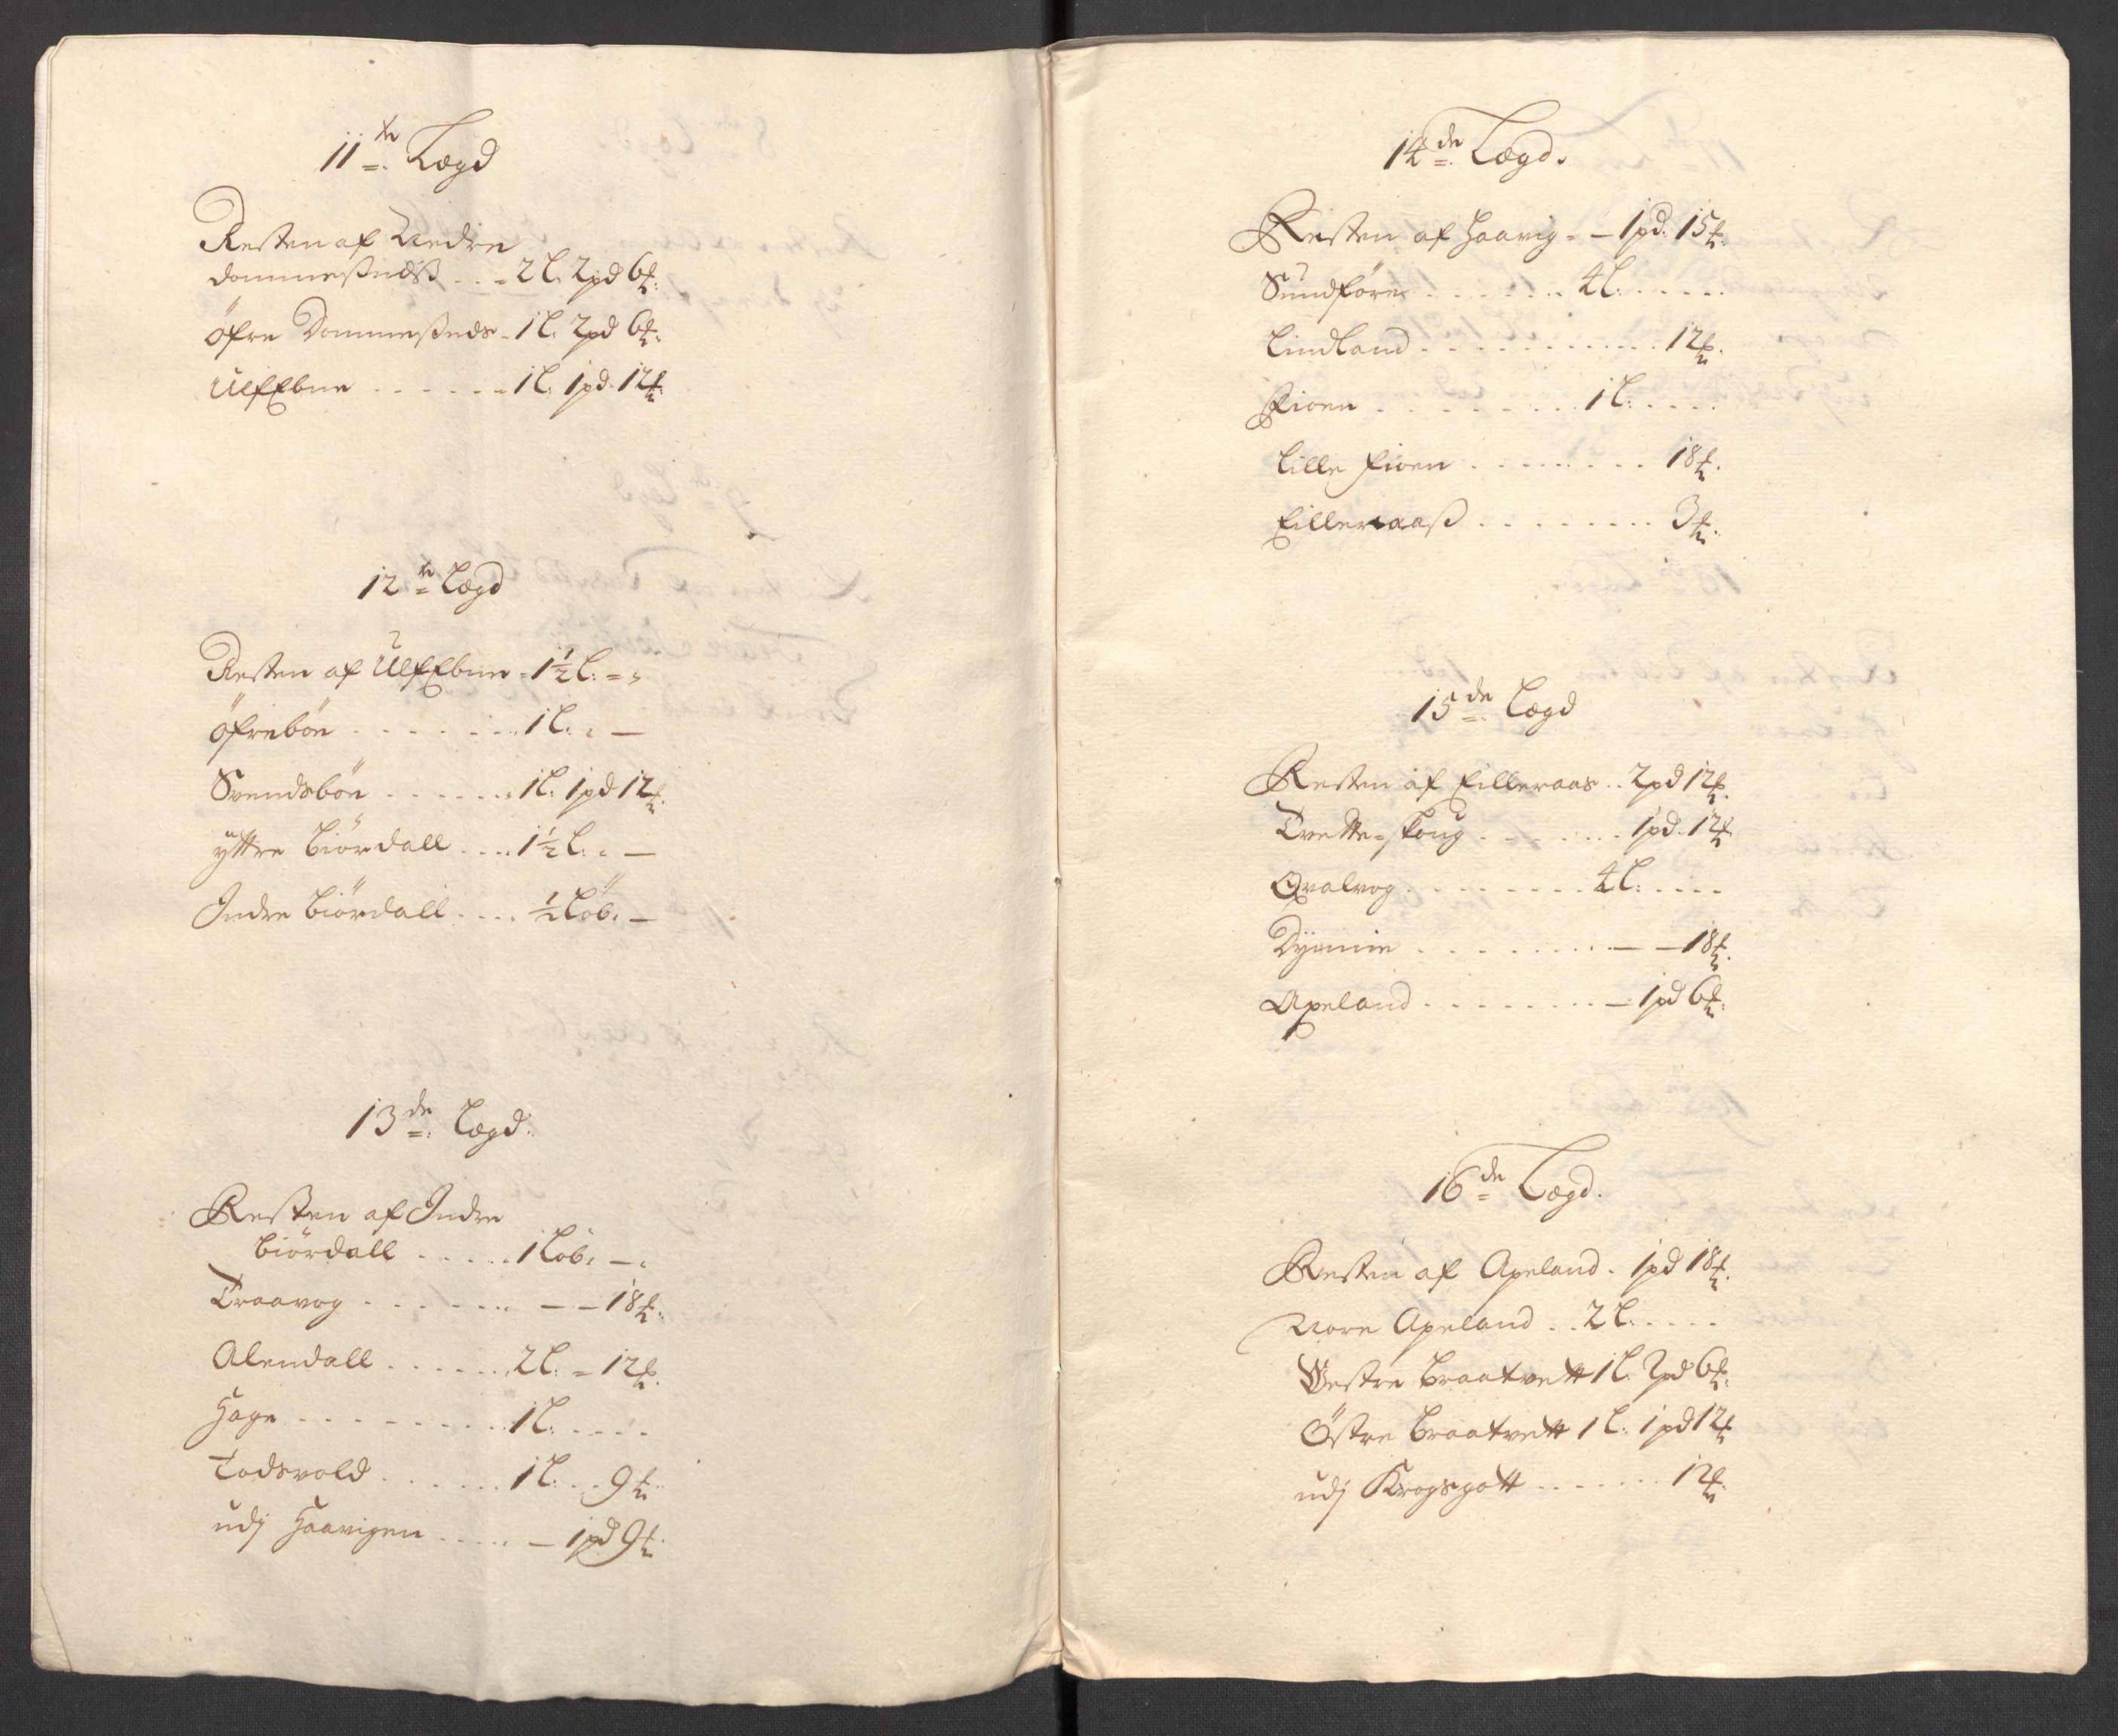 11te Lægd
Resten af Nedre
Dommesnæs . . = 2 L. 2 pd 6 ℔.
öfre Dommesneds . 1 L. 2 pd 6 ℔.
UlfEbne . . . . . . 1 L. 1 pd 12 ℔.
12te Lægd
Resten af UlfEbne = 1½ L. = "
öfrebön . . . . . . . 1 L. " —
Svendsbön . . . . . . 1 L. 1 pd 12 ℔.
ÿttre Biördall . . . . 1½ L. " —
Indre Biördall . . . . ½ Löb. —
13de Lægd.
Resten af Indre
Biördall . . . . . 1 Löb. — "
Traavog . . . . . . . — — 18 ℔.
Alendall . . . . . . 2 L. = 12 ℔.
Hage . . . . . . . . . 1 L. . . . .
Todsvold . . . . . . 1 L. . . 9 ℔.
udj Haavigen . . . . . — 1 pd 9 ℔.
14de Lægd.
Resten af Haavig = — 1 pd. 15 ℔.
Sundföre . . . . . . . 4 L. . . . . .
Lindland . . . . . . . . . . . 12 ℔.
Fioen . . . . . . . . . 1 L. . . . .
Lille Fioen . . . . . . . . 18 ℔.
Eilleraas . . . . . . . . . 3 ℔.
15de Lægd
Resten af Eilleraas . . 2 pd 12 ℔.
Tvette=skoug . . . . . . . 1 pd. 12 ℔
Qvalvog . . . . . . . . 4 L. . . . .
Dÿmmie . . . . . . . . . — — 18 ℔.
Apeland . . . . . . . . — 1 pd 6 ℔.
16de Lægd.
Resten af Apeland . 1 pd 18 ℔.
Nore Apeland . . 2 L. . . . .
Westre Braatvett 1 L. 2 pd 6 ℔.
Östre Braatvett 1 L. 1 pd 12 ℔
udj Krogsgott . . . . . . 12 ℔.